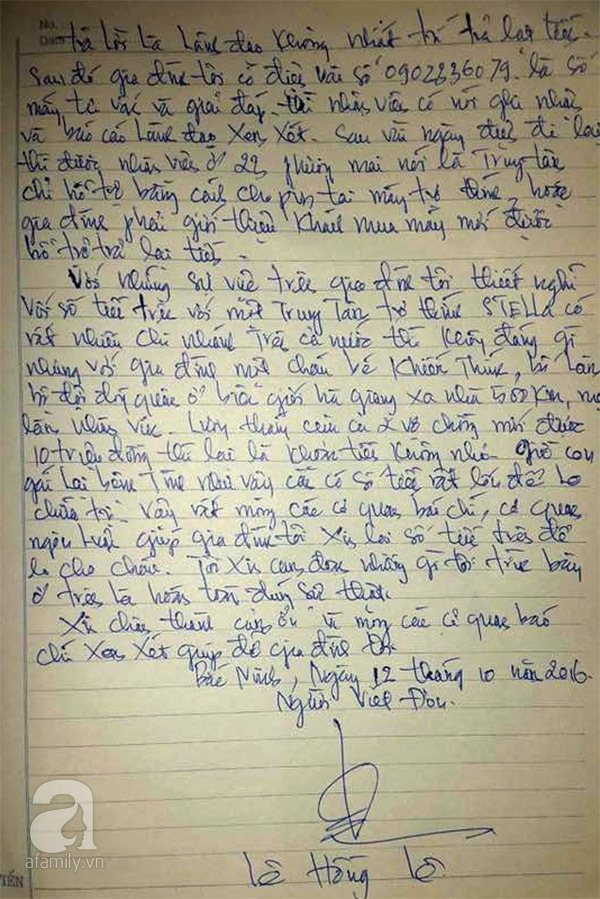 No.
trả lời là lãnh đạo không nhất trí trả lại tiền.
Sau đó gia đình tôi có điện vài số 0902836079. là số
máy tư vấn và giải đáp. thì nhân viên có nói ghi nhận
và báo cáo lãnh đạo xem xét. Sau vài ngày điện đi lại
thì được nhân viên ở 22 phương mai nói là Trung tâm
chỉ hỗ trợ bằng cách cho pin tai máy trợ thính, hoặc
gia đình phải giới thiệu khách mua máy mới được
hỗ trợ trả lại tiền.
Với những sự việc trên gia đình tôi thiết nghĩ
Với số tiền trên với một Trung Tâm trợ thính STELLA có
rất nhiều chi nhánh Trên cả nước thì không đáng gì
nhưng với gia đình một cháu bé khiếm thính, bố làm
bộ đội đóng quân ở biên giới hà giang xa nhà 500 km, mẹ
làm nhân viên. Lương tháng của cả 2 vợ chồng mới được
10 triệu đồng thì lại là khoản tiền không nhỏ. giờ con
gái lại bệnh như vậy cần có số tiền rất lớn để lo
chữa trị vậy rất mong các cơ quan báo chí, cơ quan
ngôn luận giúp gia đình tôi xin lại số tiền trên để
lo cho cháu. Tôi xin cam đoan những gì tôi trình bày
ở trên là hoàn toàn đúng sự thật.
Xin chân thành cảm ơn và mong các cơ quan báo
chí xem xét giúp đỡ gia đình tôi.
Bắc Ninh, Ngày 12 tháng 10 năm 2016.
Người Viết Đơn.
Lê Hồng
a
afamily.vn
TIẾN